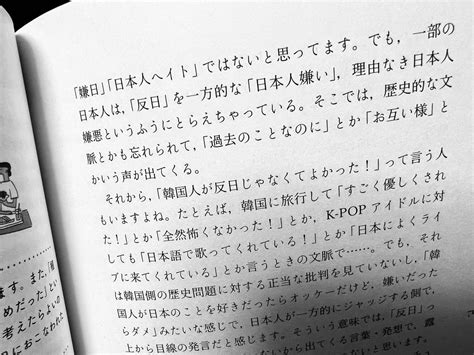 「嫌日」「日本人ヘイト」ではないと思ってます。でも，一部の
日本人は，「反日」を一方的な「日本人嫌い」，理由なき日本人
嫌悪というふうにとらえちゃっている。そこでは，歴史的な文
脈とかも忘れられて，「過去のことなのに」とか「お互い様」と
かいう声が出てくる。
それから，「韓国人が反日じゃなくてよかった！」って言う人
もいますよね。たとえば，韓国に旅行して「すごく優しくされ
た！」とか「全然怖くなかった！」とか，K-POPアイドルに対
しても「日本語で歌ってくれている！」とか「日本によくライ
ブに来てくれている！」とか言うときの文脈で……。でも，それ
は韓国側の歴史問題に対する正当な批判を見ていないし，「韓
国人が日本のことを好きだったらオッケーだけど，嫌いだった
らダメ」みたいな感じで，日本人が一方的にジャッジする側で，
上から目線の発言だと感じます。そういう意味では，「反日」っ
から出てくる言葉・発想で，露
ます。また，「
めだった」とい
考えたらよいの
におこなわれよ